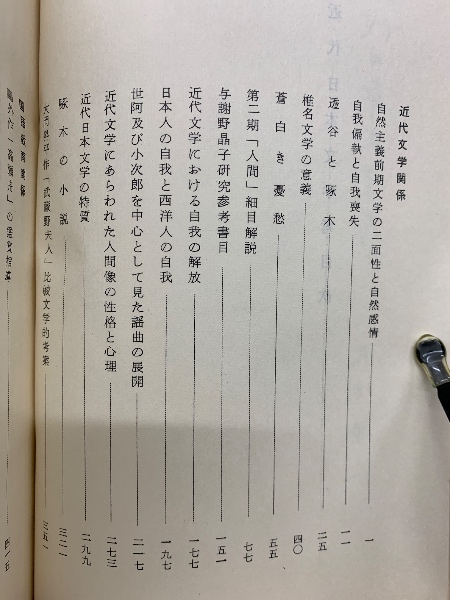 近代文学関係
自然主義前期文学の二面性と自然感情 一
自我偏執と自我喪失 一一
透谷と啄木 二五
椎名文学の意義 四〇
蒼白き憂愁 五五
第二期「人間」細目解説 七七
与謝野晶子研究参考書目 一五一
近代文学における自我の解放 一七七
日本人の自我と西洋人の自我 一九七
世阿及び小次郎を中心として見た謡曲の展開 二一七
近代文学にあらわれた人間像の性格と心理 二七三
近代日本文学の特質 二九九
啄木の小説 三二一
大岡昇平作「武蔵野夫人」比較文学的考察 三五一